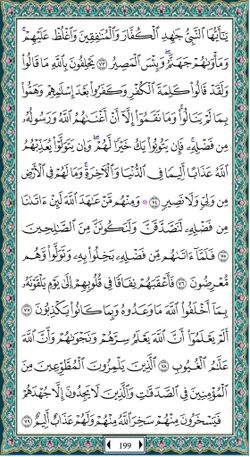 يَـٰٓأَيُّهَا ٱلنَّبِىُّ جَـٰهِدِ ٱلْكُفَّارَ وَٱلْمُنَـٰفِقِينَ وَٱغْلُظْ عَلَيْهِمْ ۚ
وَمَأْوَىٰهُمْ جَهَنَّمُ ۖ وَبِئْسَ ٱلْمَصِيرُ ٧٣ يَحْلِفُونَ بِٱللَّهِ مَا قَالُوا۟
وَلَقَدْ قَالُوا۟ كَلِمَةَ ٱلْكُفْرِ وَكَفَرُوا۟ بَعْدَ إِسْلَـٰمِهِمْ وَهَمُّوا۟
بِمَا لَمْ يَنَالُوا۟ ۚ وَمَا نَقَمُوٓا۟ إِلَّآ أَنْ أَغْنَىٰهُمُ ٱللَّهُ وَرَسُولُهُۥ
مِن فَضْلِهِۦ ۚ فَإِن يَتُوبُوا۟ يَكُ خَيْرًا لَّهُمْ ۖ وَإِن يَتَوَلَّوْا۟ يُعَذِّبْهُمُ
ٱللَّهُ عَذَابًا أَلِيمًا فِى ٱلدُّنْيَا وَٱلْـَٔاخِرَةِ ۚ وَمَا لَهُمْ فِى ٱلْأَرْضِ
مِن وَلِىٍّ وَلَا نَصِيرٍ ٧٤ ۞ وَمِنْهُم مَّنْ عَـٰهَدَ ٱللَّهَ لَئِنْ ءَاتَىٰنَا
مِن فَضْلِهِۦ لَنَصَّدَّقَنَّ وَلَنَكُونَنَّ مِنَ ٱلصَّـٰلِحِينَ
٧٥ فَلَمَّآ ءَاتَىٰهُم مِّن فَضْلِهِۦ بَخِلُوا۟ بِهِۦ وَتَوَلَّوا۟ وَّهُم
مُّعْرِضُونَ ٧٦ فَأَعْقَبَهُمْ نِفَاقًا فِى قُلُوبِهِمْ إِلَىٰ يَوْمِ يَلْقَوْنَهُۥ
بِمَآ أَخْلَفُوا۟ ٱللَّهَ مَا وَعَدُوهُ وَبِمَا كَانُوا۟ يَكْذِبُونَ ٧٧
أَلَمْ يَعْلَمُوٓا۟ أَنَّ ٱللَّهَ يَعْلَمُ سِرَّهُمْ وَنَجْوَىٰهُمْ وَأَنَّ ٱللَّهَ
عَلَّـٰمُ ٱلْغُيُوبِ ٧٨ ٱلَّذِينَ يَلْمِزُونَ ٱلْمُطَّوِّعِينَ مِنَ
ٱلْمُؤْمِنِينَ فِى ٱلصَّدَقَـٰتِ وَٱلَّذِينَ لَا يَجِدُونَ إِلَّا جُهْدَهُمْ
فَيَسْخَرُونَ مِنْهُمْ ۙ سَخِرَ ٱللَّهُ مِنْهُمْ وَلَهُمْ عَذَابٌ أَلِيمٌ ٧٩
199